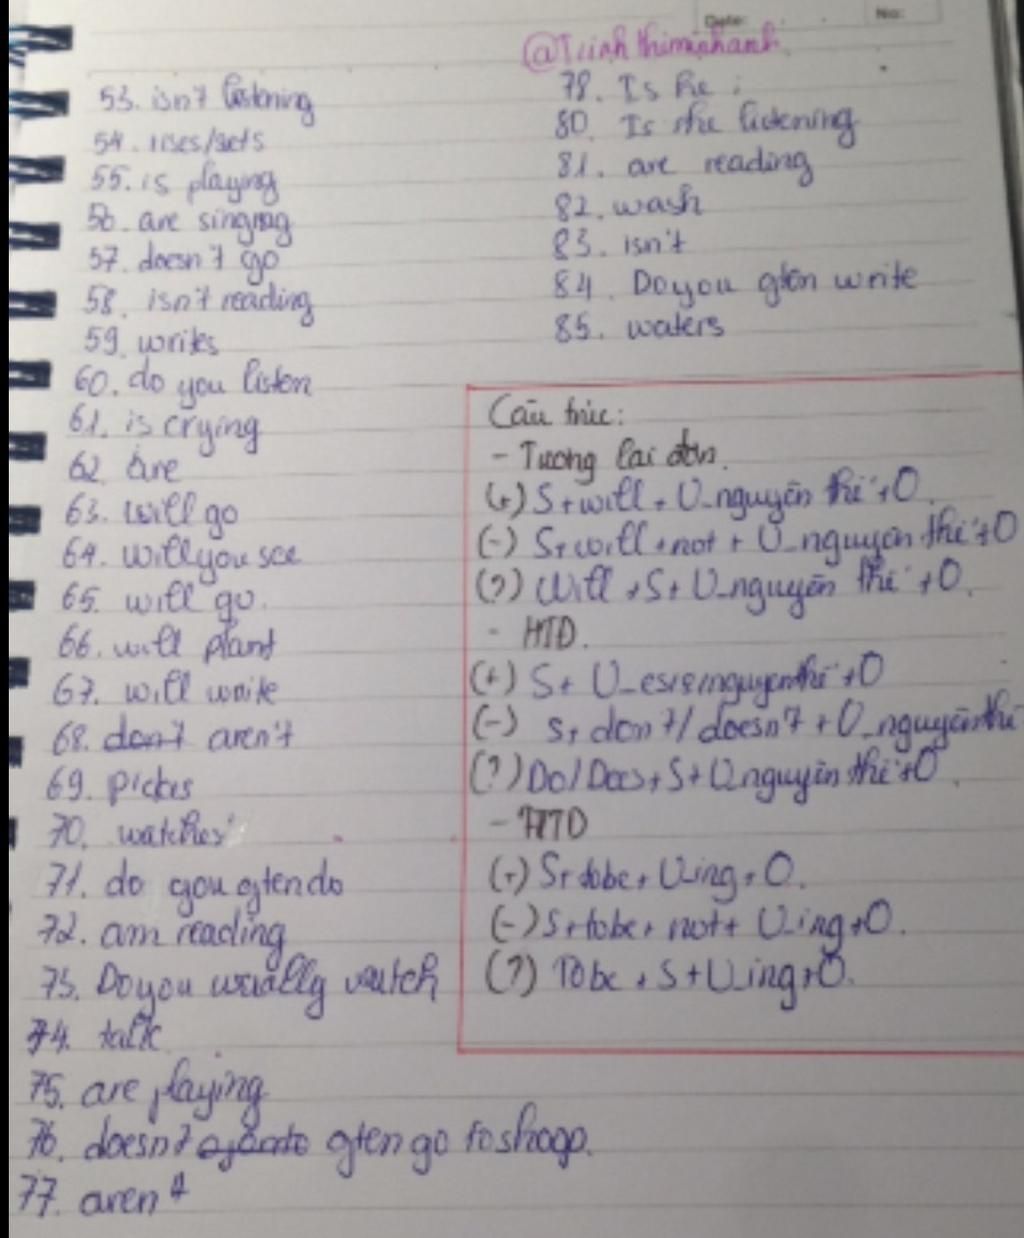 Date:
No:
@Trinhthiminhanh
53. isn't listening
54. rises/sets
55. is playing
56. are singing
57. doesn't go
58. isn't reading
59. writes
60. do you listen
61. is crying
62. are
63. will go
64. will you see
65. will go.
66. will plant
67. will write
68. don't aren't
69. Pickes
70. watches
71. do you often do
72. am reading
73. Do you usually watch
74. talk
75. are playing
76. doesn't often go to shoop.
77. aren't
78. Is he :
80. Is she listening
81. are reading
82. wash
83. isn't
84. Do you often write
85. waters
Cấu trúc:
- Tương lai đơn.
(+) S + will + V_nguyên thể + O.
(-) S + will + not + V_nguyên thể + O
(?) Will + S + V_nguyên thể + O.
- HTD.
(+) S + V_es/s/nguyên thể + O
(-) S + don't / doesn't + V_nguyên thể
(?) Do/Does + S + V_nguyên thể + O.
- HTTD
(+) S + tobe + V_ing + O.
(-) S + tobe + not + V_ing + O.
(?) Tobe + S + V_ing + O.